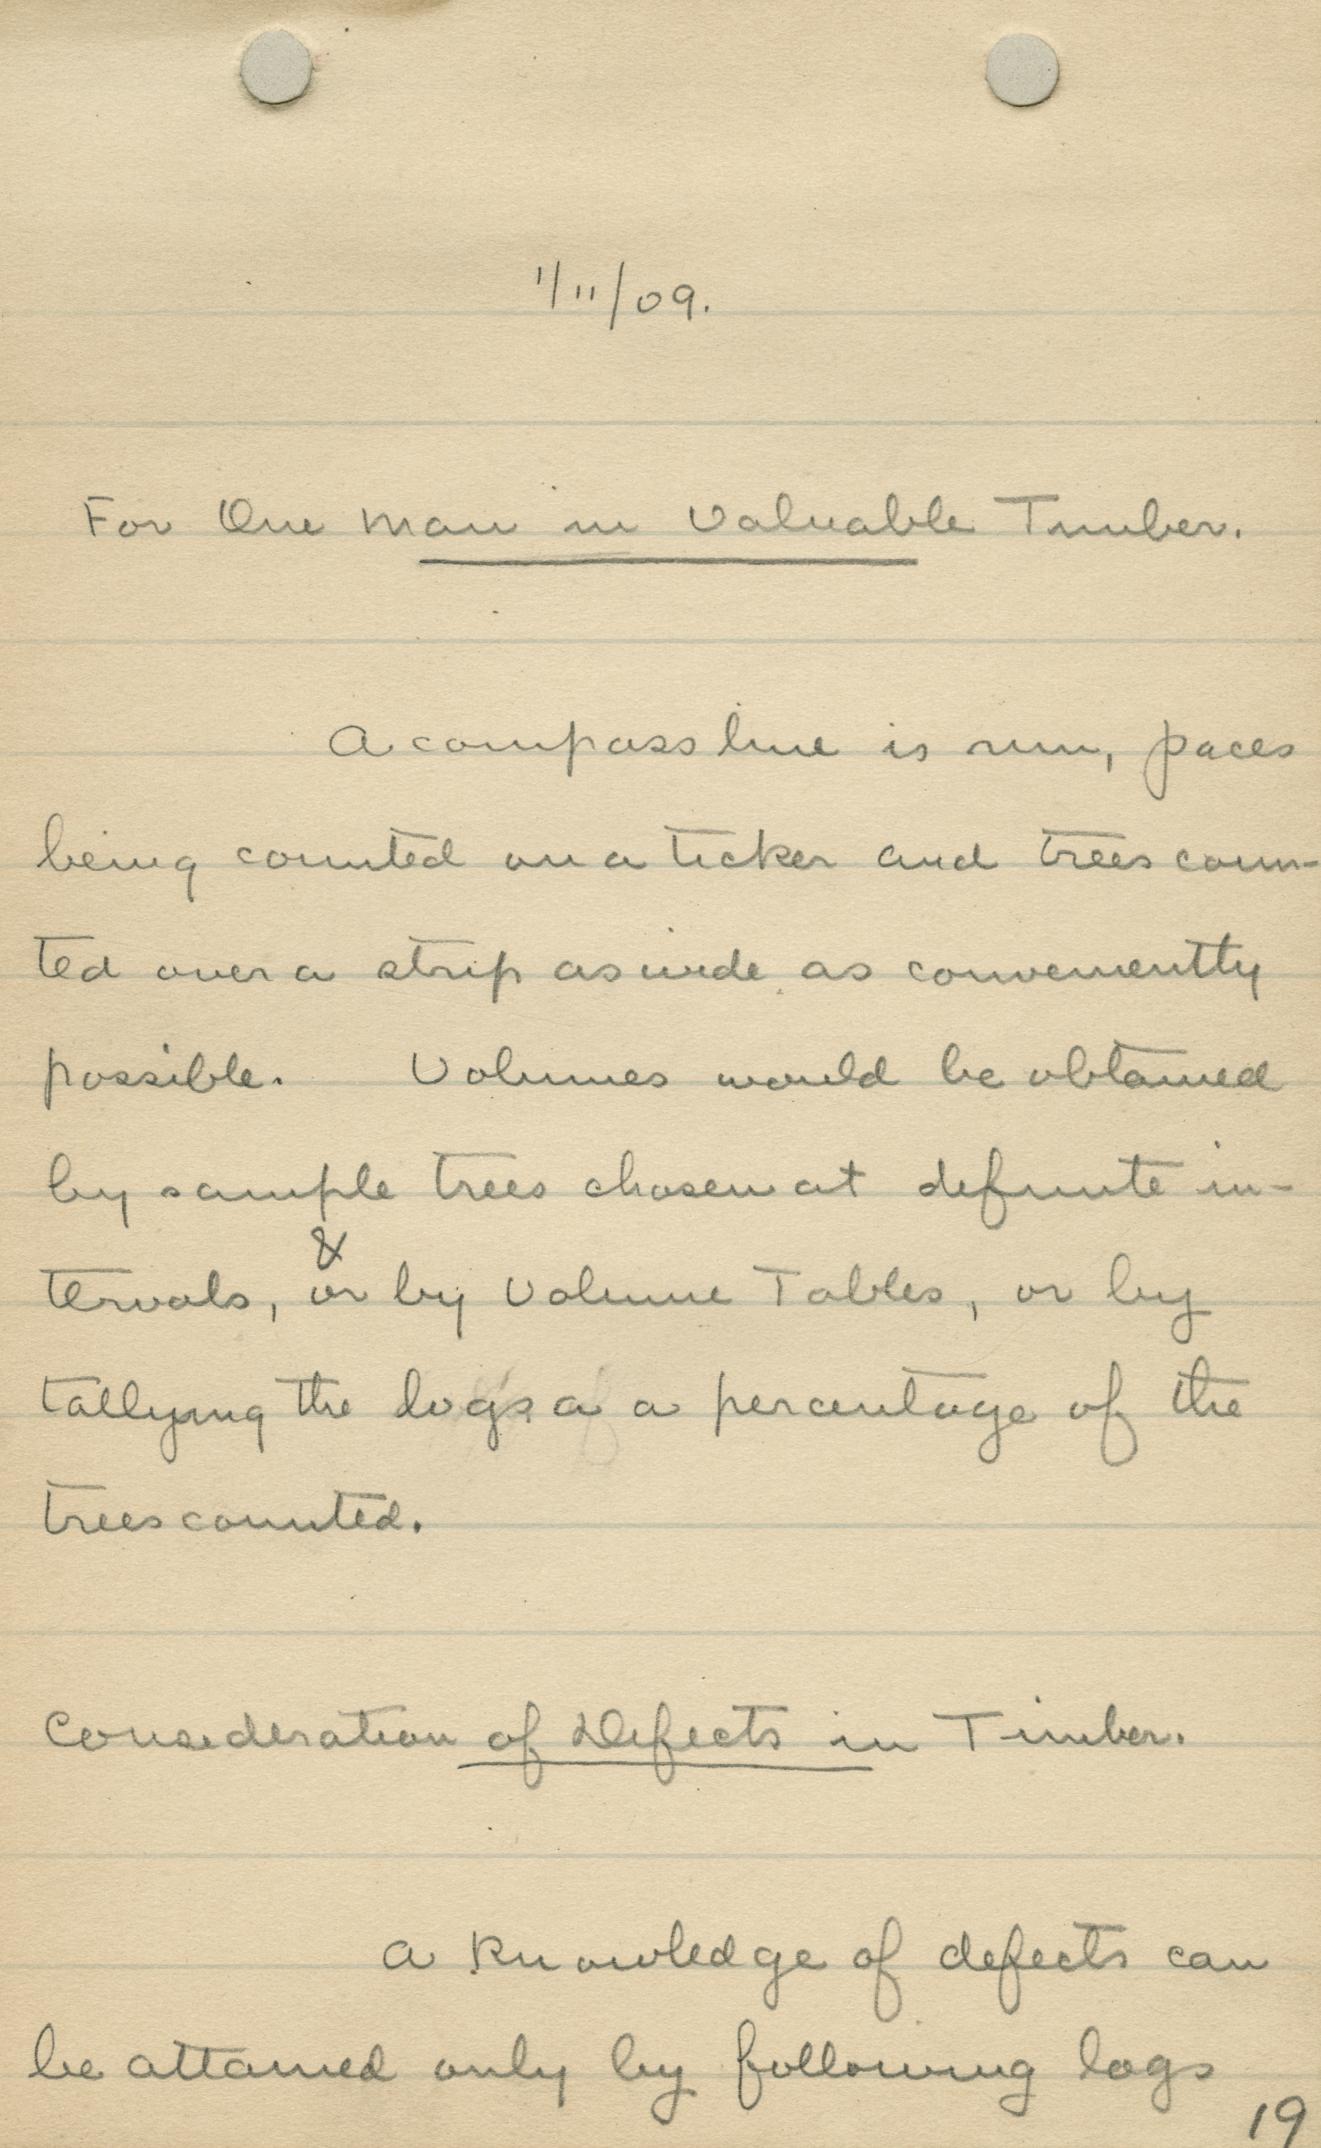 1/11/09.
For One Man in Valuable Timber.
A compass line is run, paces
being counted on a ticker and trees coun-
ted over a strip as wide as conveniently
possible. Volumes would be obtained
by sample trees chosen at definite in-
&
tervals, or by Volume Tables, or by
tallying the logs a a percentage of the
trees counted.
Consideration of Defects in Timber.
A knowledge of defects can
be attained only by following logs
19